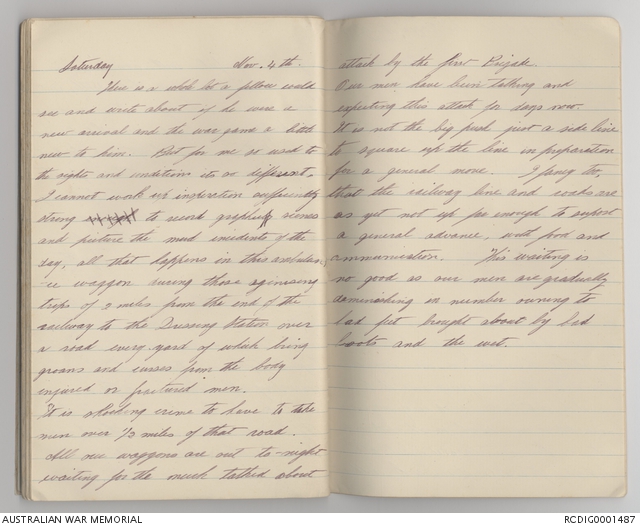 Saturday Nov. 4th.
There is a whole lot a fellow could
see and write about if he were a
new arrival and the war game a little
new to him. But for me so used to
the sights and it is so different.
I cannot work up inspiration sufficiently
strong to record graphic scenes
and picture the mud incidents of the
day, all that happens in this ambulan-
ce waggon during those agonising
trips of 2 miles from the end of the
railway to the Dressing Station over
a road every yard of which bring
groans and curses from the body
injured or fractured men.
It is shocking crime to have to take
men over 1/2 miles of that road.
All our waggons are out to-night
waiting for the much talked about
attack by the first Brigade.
Our men have been talking and
expecting this attack for days now.
It is not the big push just a side line
to square up the line in preparation
for a general move. I fancy tho,
that the railway line and roads are
as yet not up far enough to support
a general advance, with food and
ammunition. This waiting is
no good as our men are gradually
diminishing in number owning to
bad feet brought about by bad
boots and the wet.
AUSTRALIAN WAR MEMORIAL RCDIG0001487